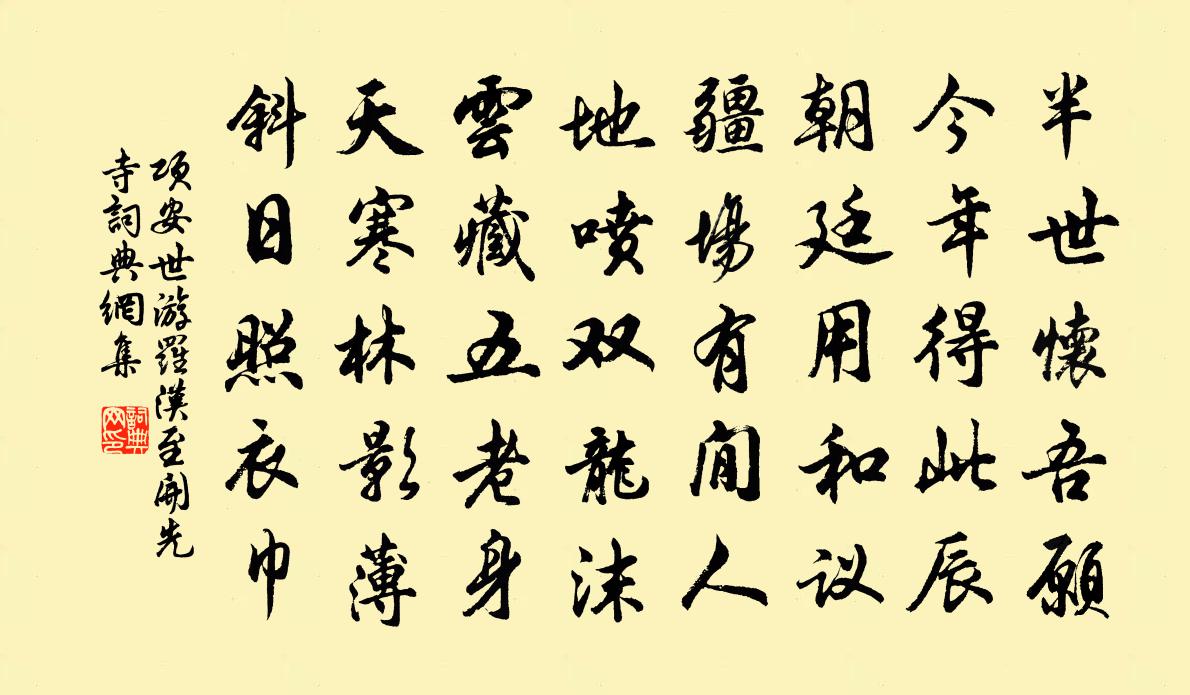 半世懷吾願
今年得此辰
朝廷用和议
疆場有閒人
地喷双龍沫
雲藏五老身
天寒林影薄
斜日照衣巾
项安世游羅漢至開先
寺詞典網集
詞典网印